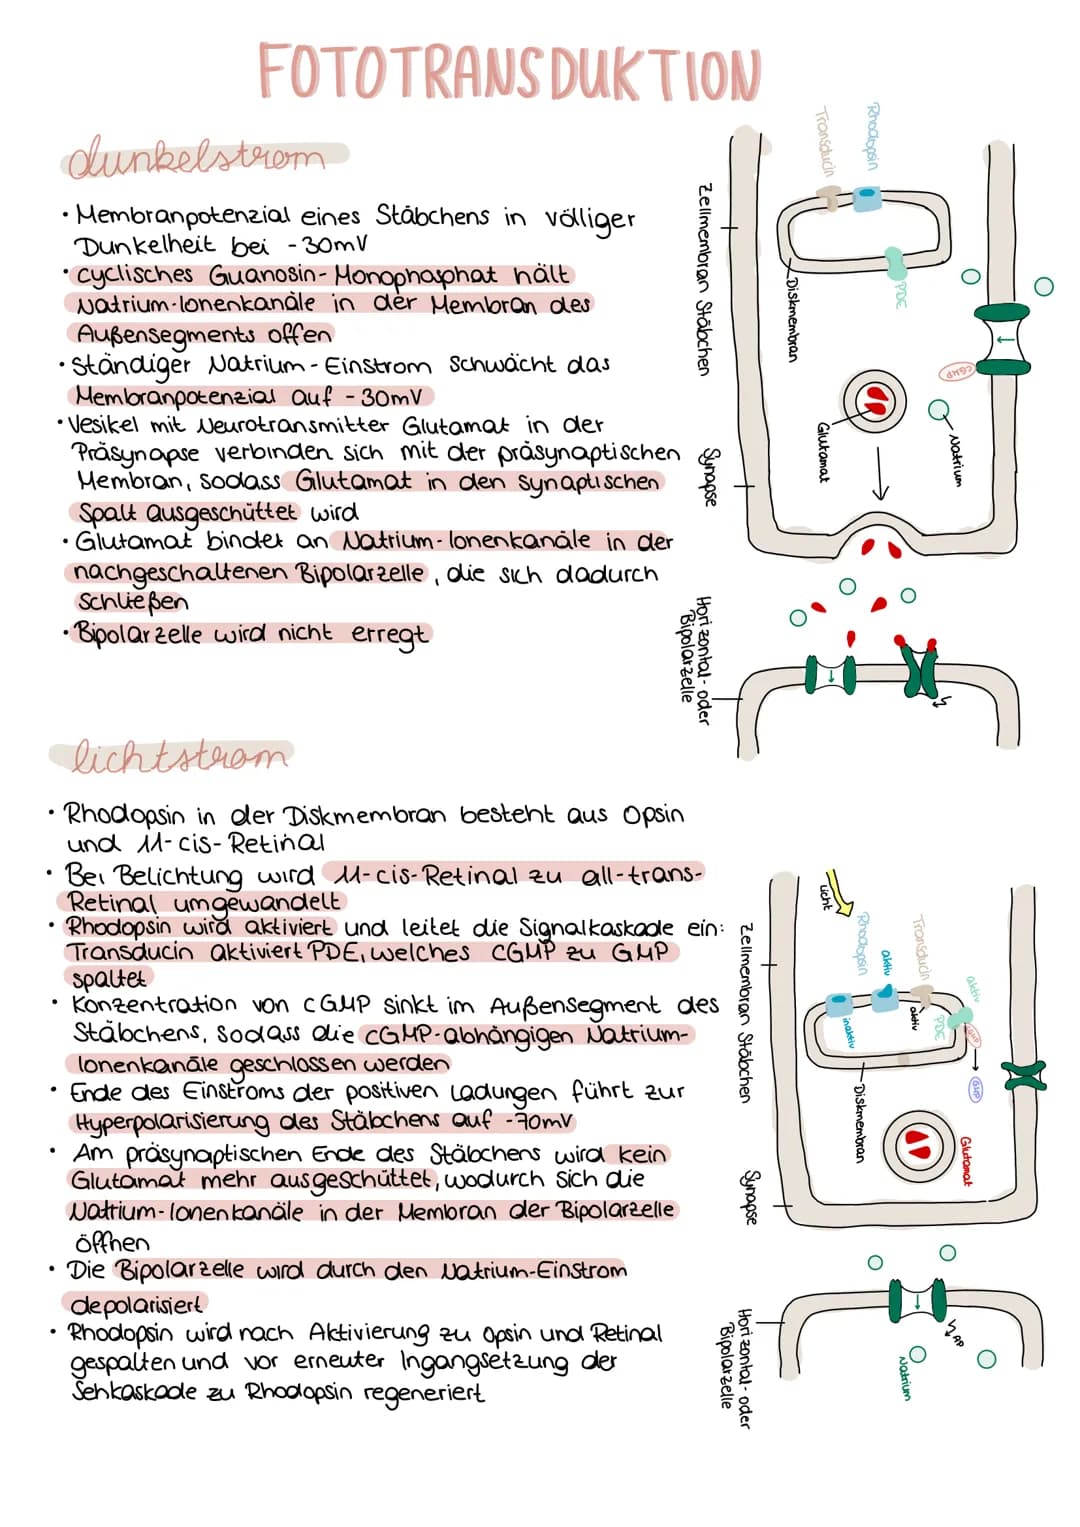 FOTOTRANSDUKTION
dunkelstrom
• Membranpotenzial eines Stäbchens in völliger
Dunkelheit bei -30mV
• cyclisches Guanosin-Monophosphat hält
Natrium-Ionenkanäle in der Membran des
Außensegments offen
• Ständiger Natrium-Einstrom schwächt das
Membranpotenzial auf -30mV
• Vesikel mit Neurotransmitter Glutamat in der
Präsynapse verbinden sich mit der präsynaptischen
Membran, sodass Glutamat in den synaptischen
Spalt ausgeschüttet wird
• Glutamat bindet an Natrium-Ionenkanäle in der
nachgeschaltenen Bipolarzelle, die sich dadurch
schließen
• Bipolarzelle wird nicht erregt
Zellmembran Stäbchen
Synapse
Horizontal- oder
Bipolarzelle
Transducin
Rhodopsin
PDE
Diskmembran
cGMP
Natrium
Glutamat
lichtstrom
• Rhodopsin in der Diskmembran besteht aus Opsin
und 11-cis-Retinal
• Bei Belichtung wird 11-cis-Retinal zu all-trans-
Retinal umgewandelt
• Rhodopsin wird aktiviert und leitet die Signalkaskade ein:
Transducin aktiviert PDE, welches cGMP zu GMP
spaltet
• Konzentration von cGMP sinkt im Außensegment des
Stäbchens, sodass die cGMP-abhängigen Natrium-
Ionenkanäle geschlossen werden
• Ende des Einstroms der positiven Ladungen führt zur
Hyperpolarisierung des Stäbchens auf -70mV
• Am präsynaptischen Ende des Stäbchens wird kein
Glutamat mehr ausgeschüttet, wodurch sich die
Natrium-Ionenkanäle in der Membran der Bipolarzelle
öffnen
• Die Bipolarzelle wird durch den Natrium-Einstrom
depolarisiert
• Rhodopsin wird nach Aktivierung zu Opsin und Retinal
gespalten und vor erneuter Ingangsetzung der
Sehkaskade zu Rhodopsin regeneriert
Zellmembran Stäbchen
Synapse
Horizontal- oder
Bipolarzelle
Licht
Rhodopsin
aktiv
inaktiv
Transducin
aktiv
PDE
aktiv
cGMP
GMP
Diskmembran
Glutamat
AP
Natrium